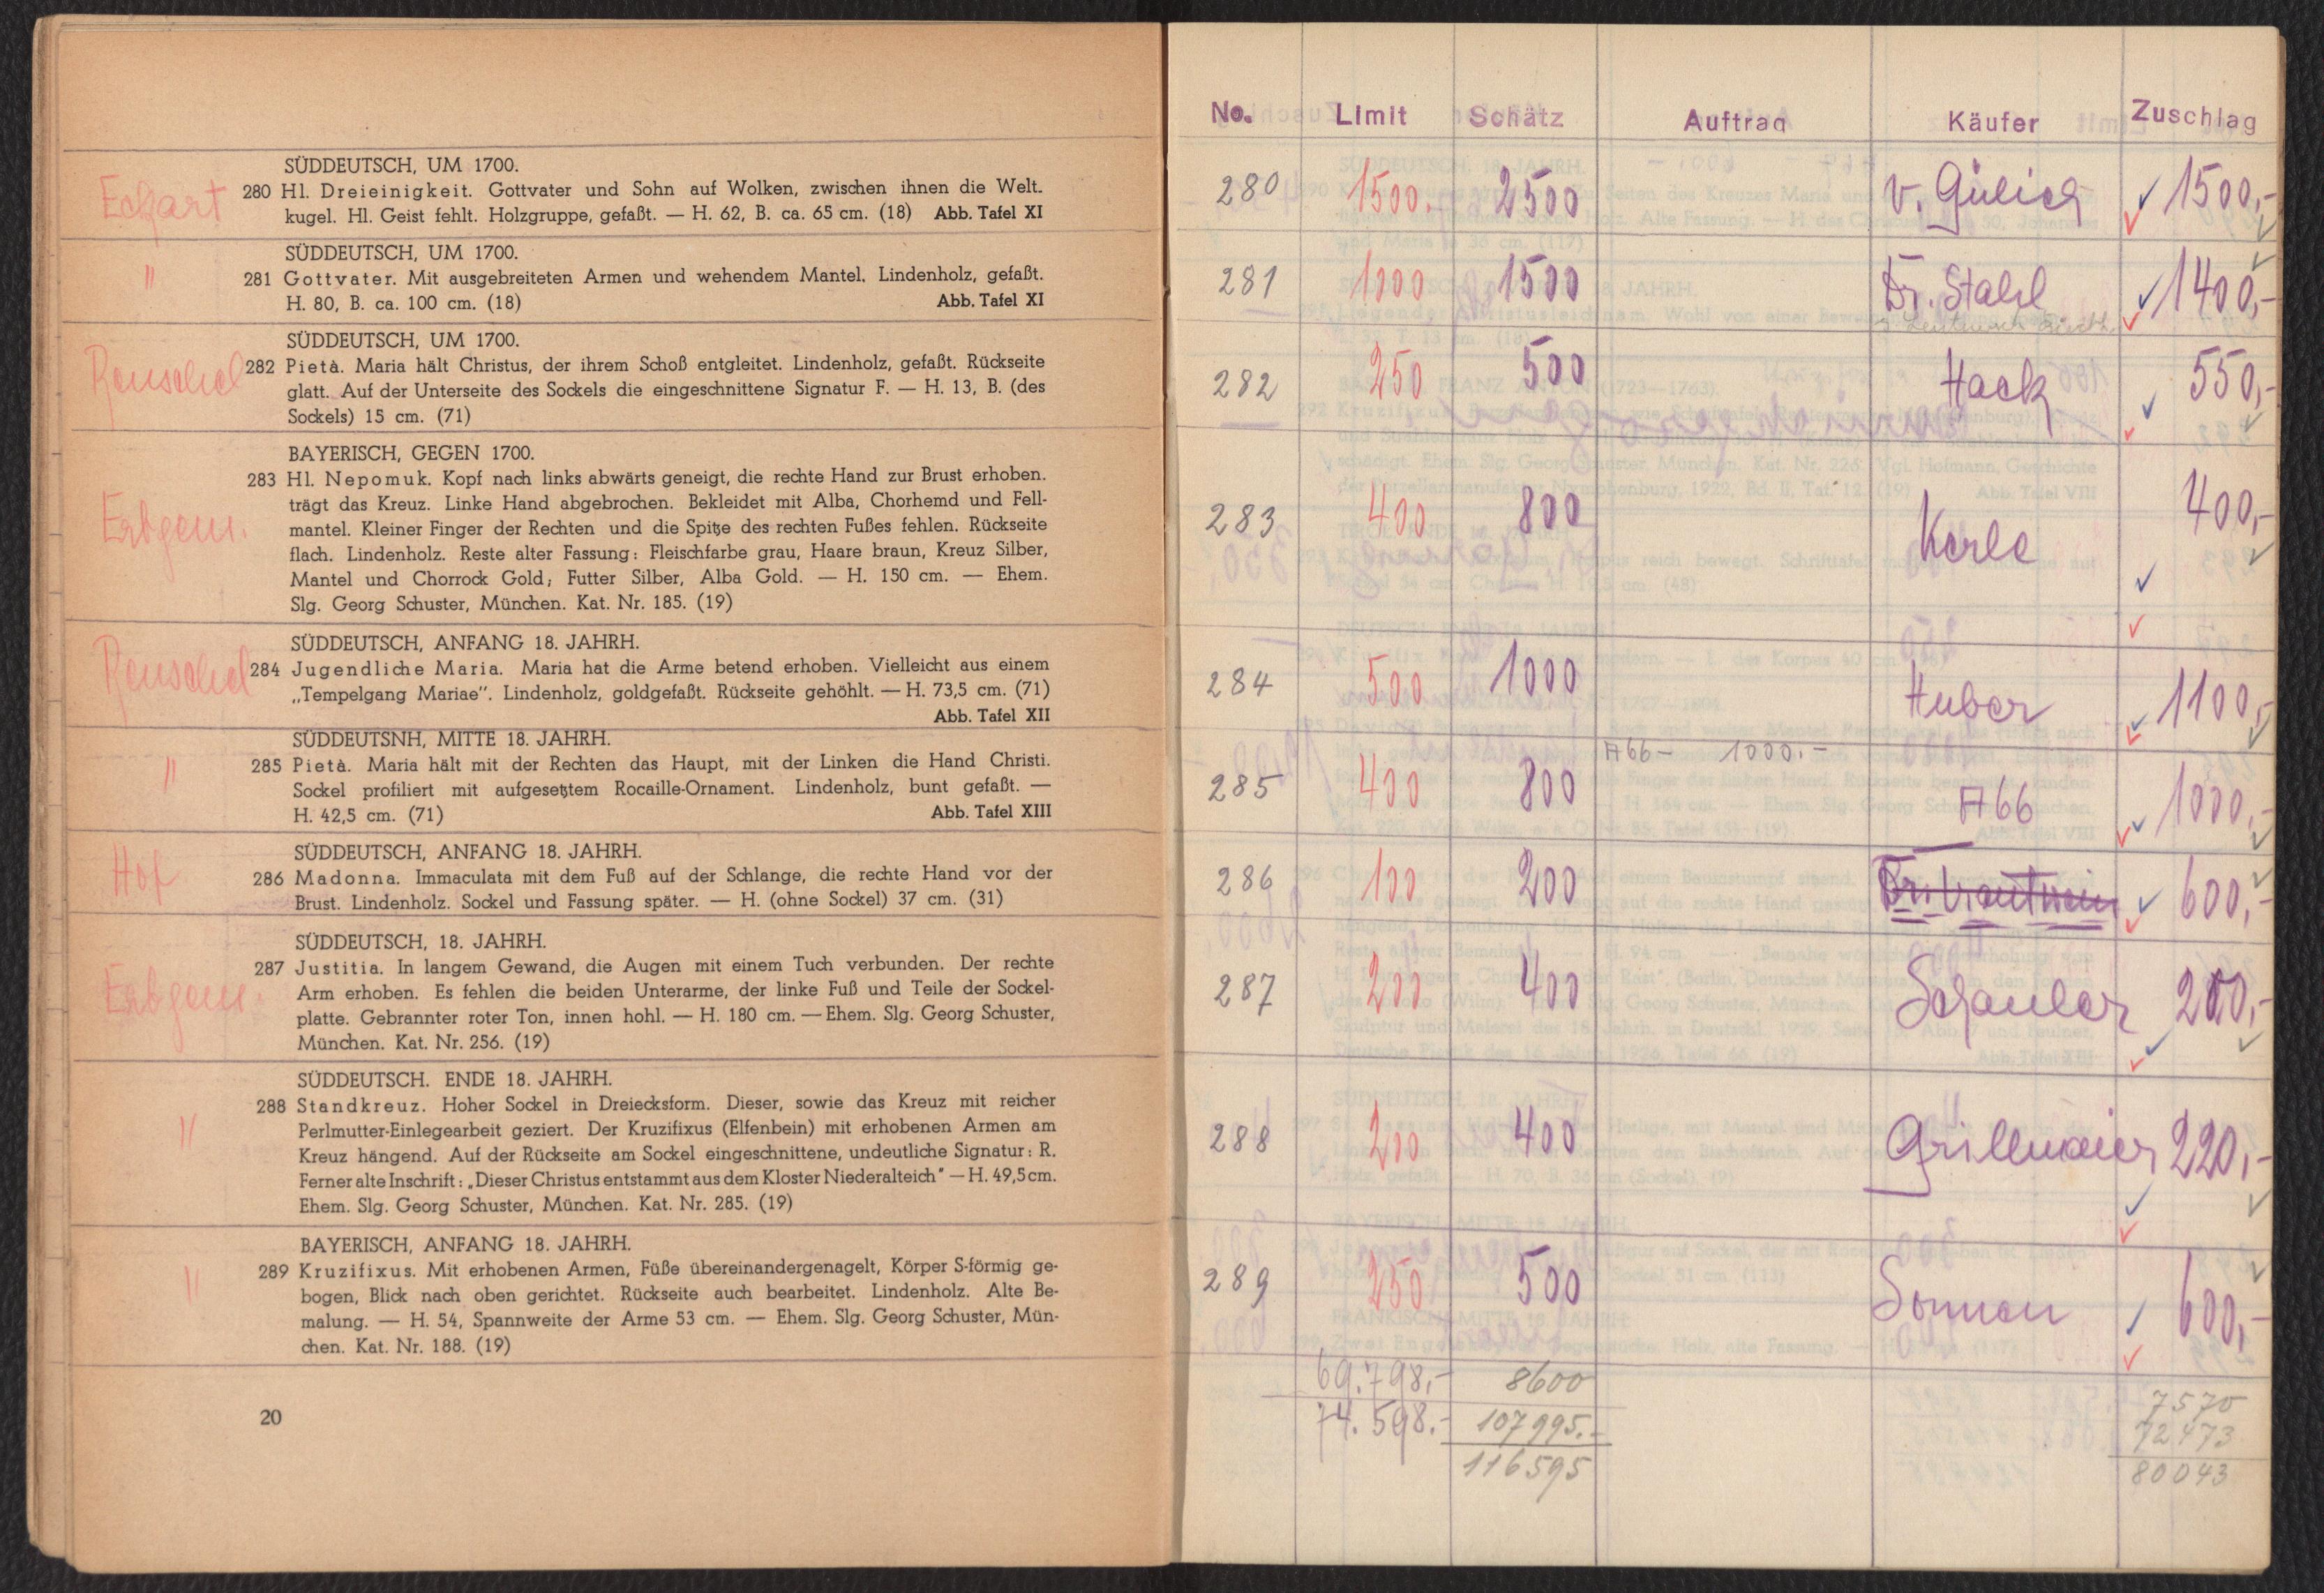 SÜDDEUTSCH, UM 1700.
Eckart 280 Hl. Dreieinigkeit. Gottvater und Sohn auf Wolken, zwischen ihnen die Welt-
kugel. Hl. Geist fehlt. Holzgruppe, gefaßt. — H. 62, B. ca. 65 cm. (18) Abb. Tafel XI
SÜDDEUTSCH, UM 1700.
" 281 Gottvater. Mit ausgebreiteten Armen und wehendem Mantel. Lindenholz, gefaßt.
H. 80, B. ca. 100 cm. (18) Abb. Tafel XI
SÜDDEUTSCH, UM 1700.
Reuschel 282 Pietà. Maria hält Christus, der ihrem Schoß entgleitet. Lindenholz, gefaßt. Rückseite
glatt. Auf der Unterseite des Sockels die eingeschnittene Signatur F. — H. 13, B. (des
Sockels) 15 cm. (71)
BAYERISCH, GEGEN 1700.
283 Hl. Nepomuk. Kopf nach links abwärts geneigt, die rechte Hand zur Brust erhoben.
trägt das Kreuz. Linke Hand abgebrochen. Bekleidet mit Alba, Chorhemd und Fell-
Erbgem. mantel. Kleiner Finger der Rechten und die Spitze des rechten Fußes fehlen. Rückseite
flach. Lindenholz. Reste alter Fassung: Fleischfarbe grau, Haare braun, Kreuz Silber,
Mantel und Chorrock Gold; Futter Silber, Alba Gold. — H. 150 cm. — Ehem.
Slg. Georg Schuster, München. Kat. Nr. 185. (19)
SÜDDEUTSCH, ANFANG 18. JAHRH.
Reuschel 284 Jugendliche Maria. Maria hat die Arme betend erhoben. Vielleicht aus einem
„Tempelgang Mariae". Lindenholz, goldgefaßt. Rückseite gehöhlt. — H. 73,5 cm. (71)
Abb. Tafel XII
SÜDDEUTSNH, MITTE 18. JAHRH.
" 285 Pietà. Maria hält mit der Rechten das Haupt, mit der Linken die Hand Christi.
Sockel profiliert mit aufgesetztem Rocaille-Ornament. Lindenholz, bunt gefaßt. —
H. 42,5 cm. (71) Abb. Tafel XIII
SÜDDEUTSCH, ANFANG 18. JAHRH.
Hof 286 Madonna. Immaculata mit dem Fuß auf der Schlange, die rechte Hand vor der
Brust. Lindenholz. Sockel und Fassung später. — H. (ohne Sockel) 37 cm. (31)
SÜDDEUTSCH, 18. JAHRH.
287 Justitia. In langem Gewand, die Augen mit einem Tuch verbunden. Der rechte
Erbgem. Arm erhoben. Es fehlen die beiden Unterarme, der linke Fuß und Teile der Sockel-
platte. Gebrannter roter Ton, innen hohl. — H. 180 cm. — Ehem. Slg. Georg Schuster,
München. Kat. Nr. 256. (19)
SÜDDEUTSCH. ENDE 18. JAHRH.
288 Standkreuz. Hoher Sockel in Dreiecksform. Dieser, sowie das Kreuz mit reicher
" Perlmutter-Einlegearbeit geziert. Der Kruzifixus (Elfenbein) mit erhobenen Armen am
Kreuz hängend. Auf der Rückseite am Sockel eingeschnittene, undeutliche Signatur: R.
Ferner alte Inschrift: „Dieser Christus entstammt aus dem Kloster Niederalteich" — H. 49,5 cm.
Ehem. Slg. Georg Schuster, München. Kat. Nr. 285. (19)
BAYERISCH, ANFANG 18. JAHRH.
" 289 Kruzifixus. Mit erhobenen Armen, Füße übereinandergenagelt, Körper S-förmig ge-
bogen, Blick nach oben gerichtet. Rückseite auch bearbeitet. Lindenholz. Alte Be-
malung. — H. 54, Spannweite der Arme 53 cm. — Ehem. Slg. Georg Schuster, Mün-
chen. Kat. Nr. 188. (19)
20
No. Limit Schätz Auftrag Käufer Zuschlag
280 1500.- 2500 v. Gülich 1500,-
281 1000 1500 Dr. Stahl 1400,-
282 250 500 Hack 550,-
283 400 800 Kerle 400,-
284 500 1000 Huber 1100,-
A66- 1000.-
285 400 800 A66 1000,-
286 100 200 Dr. Trautwein 600,-
287 200 400 Schauler 200,-
288 200 400 Grillmaier 220,-
289 250 500 Sonnen 600,-
69.798,- 8600 7570
74.598.- 107995.- 72473
116595 80043